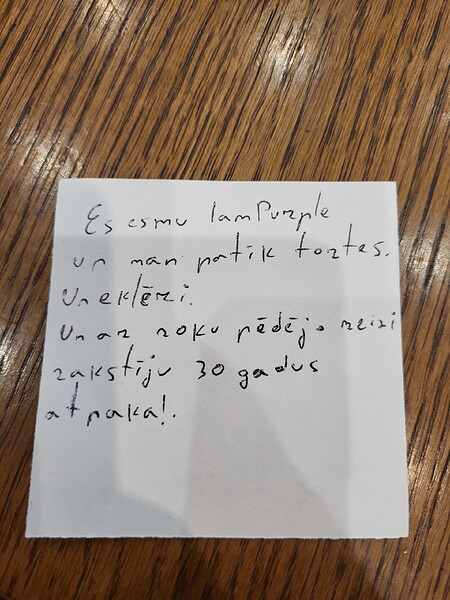 Es esmu IamPurple
un man patīk tortes.
Un eklēri.
Un ar roku pēdējo reizi
rakstīju 30 gadus
atpakaļ.